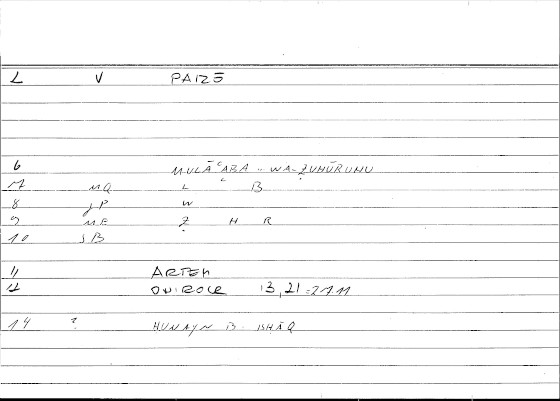 L V PAIZĒ
6 MULĀʿABA - WA-ẒUHŪRUHU
7 MQ L ʿ B
8 JP W
9 ME Ẓ H R
10 SB
11 ARTEM
12 ONIROCR 13,21=27.11
14 ? HUNAYN B. ISHĀQ